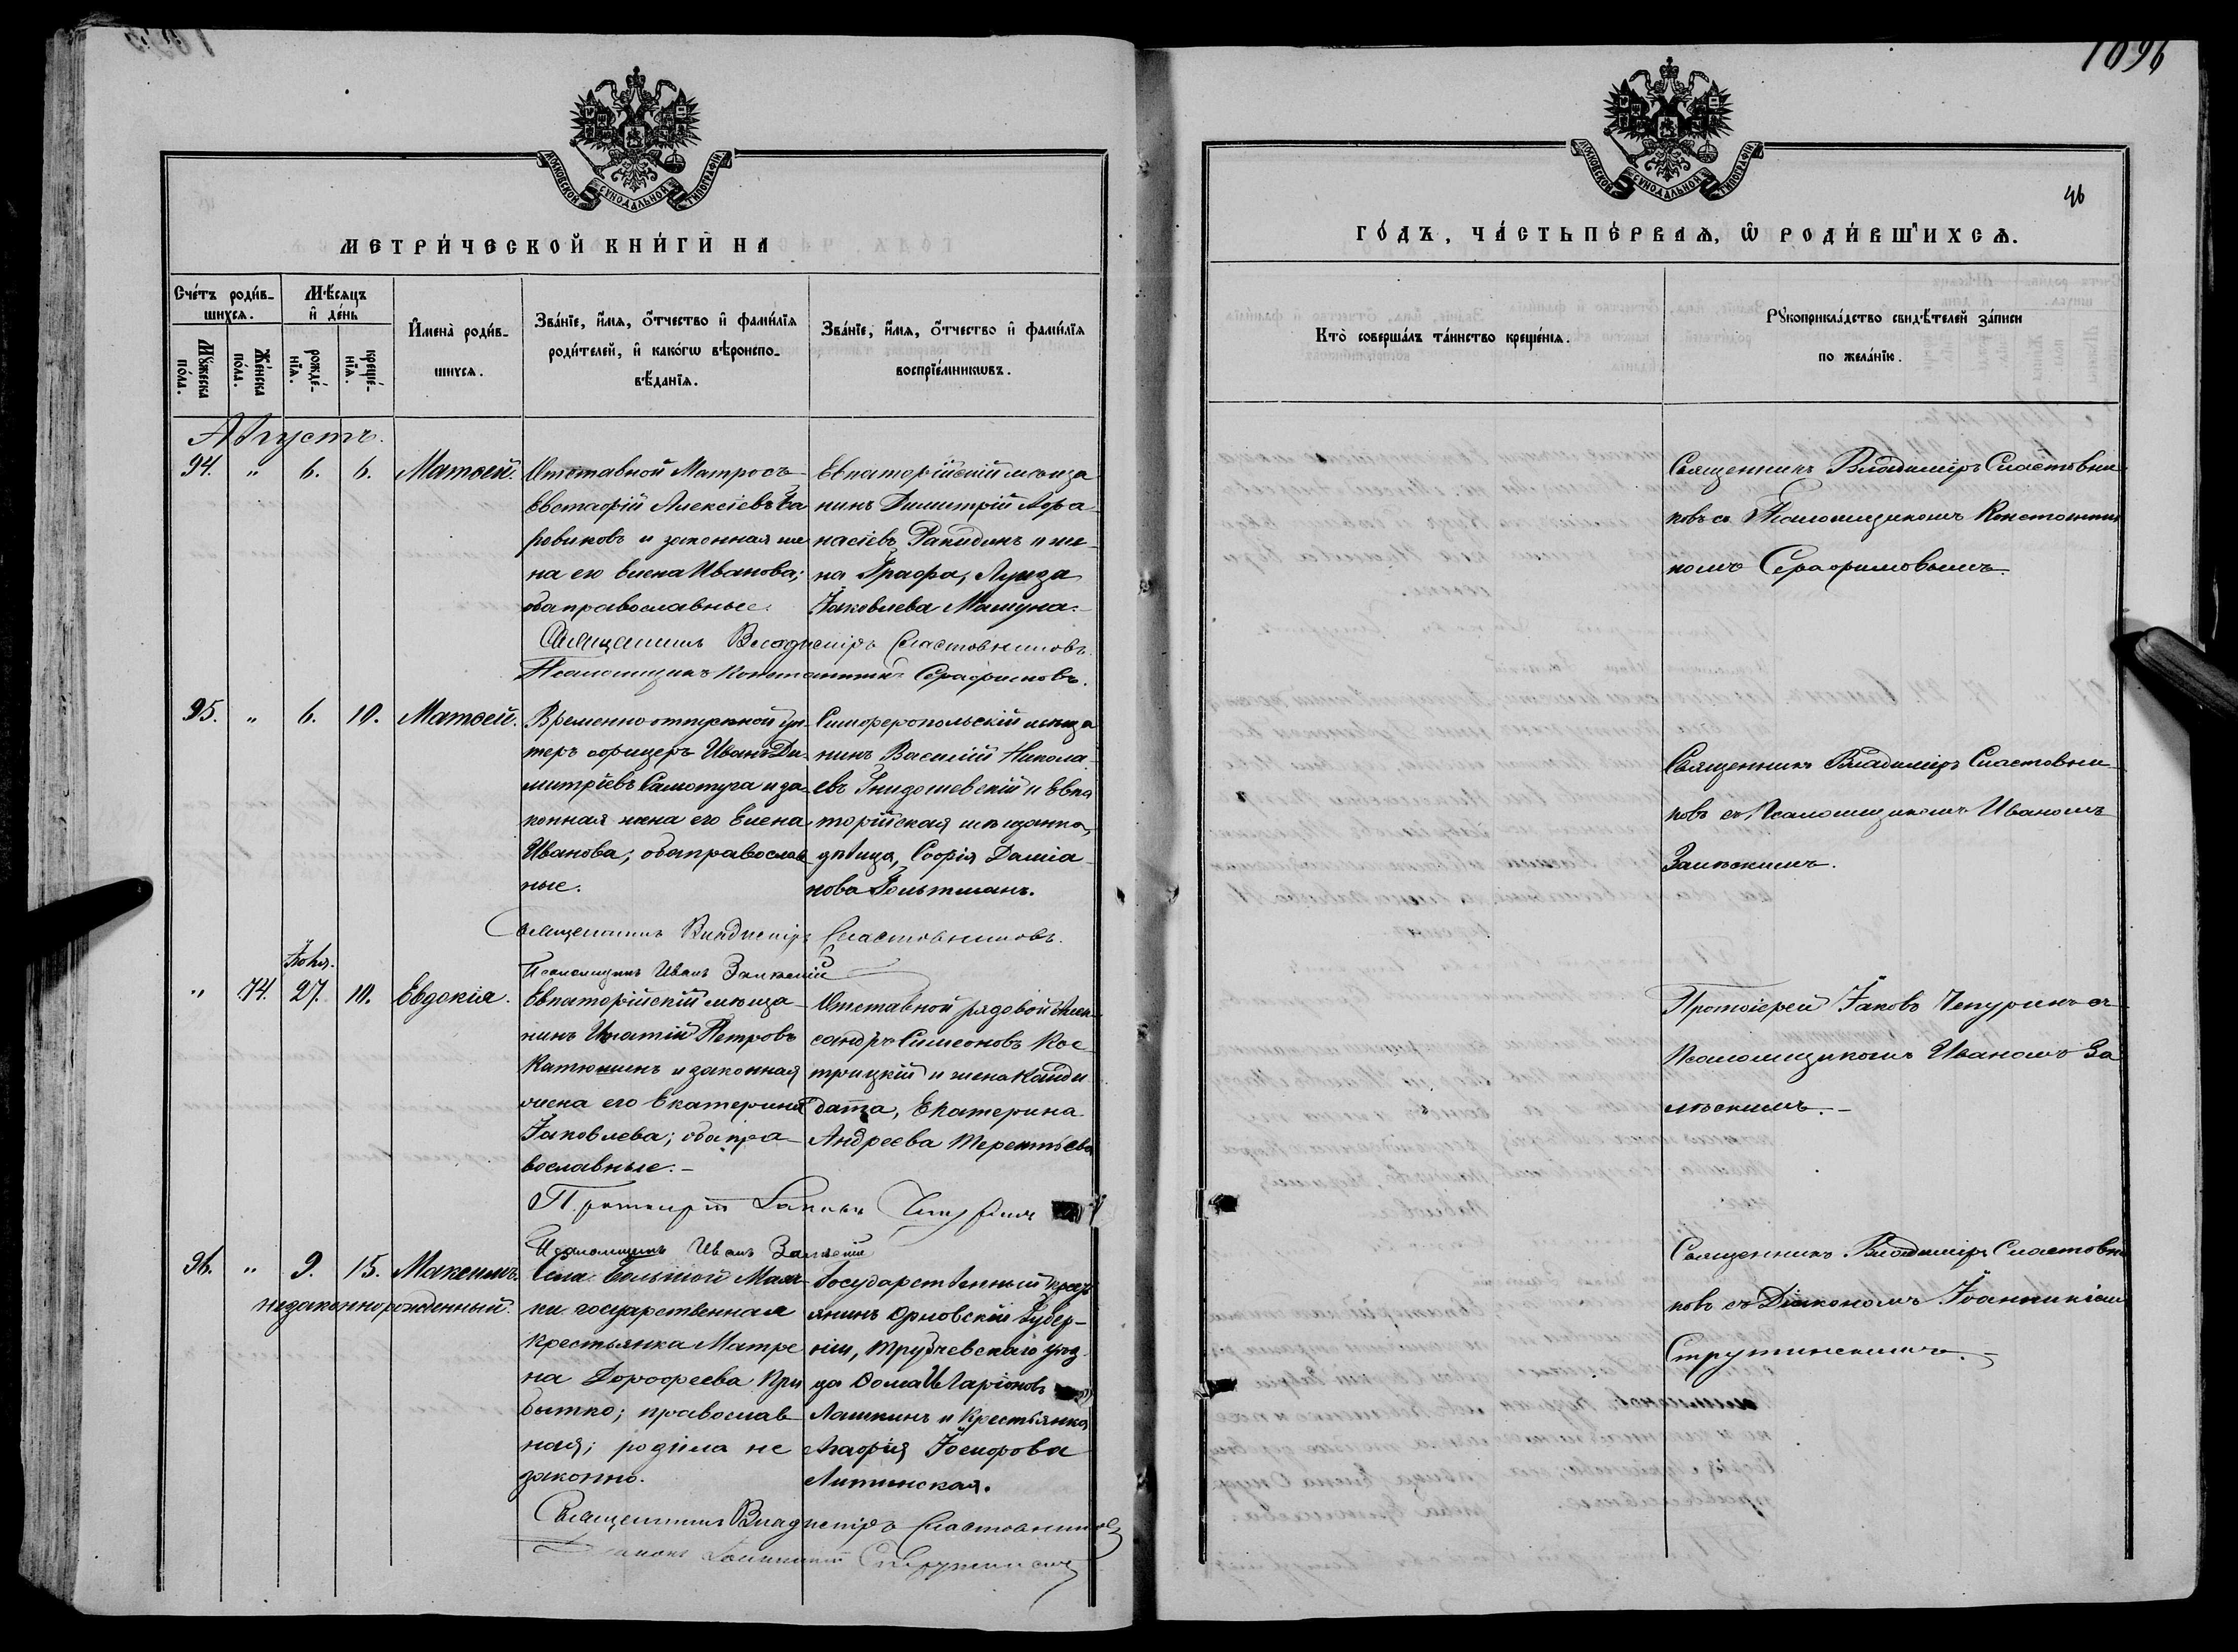 1096
МОСКОВСКОЙ СУНОДАЛЬНОЙ ТИПОГРАФІИ
МЕТРИ́ЧЕСКОЙ КНИ́ГИ НА
Сче́тъ роди́в-
шихсѧ.
Мꙋ́жеска
по́ла.
Же́нска
по́ла.
Мѣ́сѧцъ
и҆ де́нь
рожде́-
нїѧ.
креще́-
нїѧ.
И҆мена̀ роди́в-
шихсѧ.
Зва́нїе, и҆́мѧ, ѻ҆́тчество и҆ фами́лїѧ
роди́телей, и҆ како́гѡ вѣроиспо-
вѣ́данїѧ.
Зва́нїе, и҆́мѧ, ѻ҆́тчество и҆ фами́лїѧ
воспрїе́мникѡвъ.
Августъ.
94. " 6. 6. Матѳей.
Отставной Матросъ
Евстафій Алексіевъ
и законная же
на его Елена Иванова;
оба православные.
Евпаторійскій мѣща
нинъ Димитрій Афа
насіевъ и же
на Графа, Луиза
Іаковлева
Священникъ Владиміръ Сластовниковъ
Псаломщикъ Константинъ Серафимовъ.
95. " 6. 10. Матѳей.
Временно-отпускной ун
теръ офицеръ Иванъ Ди
митріевъ Самотуга и за
конная жена его Елена
Иванова; оба православ
ные.
Симферопольскій мѣща
нинъ Василій Никола
евъ и Евпа
торійская мѣщанка,
дѣвица, Софія Даміа
нова Гольтманъ.
Священникъ Владиміръ Сластовниковъ.
Псаломщикъ Иванъ Залѣскій
" 74. Іюля. 27. 10. Евдокія.
Евпаторійскій мѣща
нинъ Игнатій Петровъ
Катюшинъ и законная
жена его Екатерина
Іаковлева; оба пра
вославные.-
Отставной рядовой Алек
сандръ Симеоновъ Кос
трицкій и жена Канди
дата, Екатерина
Андреева Терентьева
Протоіерей Іаковъ Чепуринъ
Псаломщикъ Иванъ Залѣскій
96. " 9. 15. Максимъ.
незаконнорожденный.
Села Большой Маяч
ки государственная
крестьянка Матре
на Дорофеева При
бытко; православ
ная; родила не
законно.
Государственный крестъ
янинъ Орловскій Губер-
ніи, Трубчевскаго уѣз
да Ѳома Иларіоновъ
Лашкинъ и Крестьянка
Агафія
Литинская.
Священникъ Владиміръ Сластовниковъ
Діаконъ Іоанникій Струтинскій
МОСКОВСКОЙ СУНОДАЛЬНОЙ ТИПОГРАФІИ
46
ГО́ДЪ, ЧА́СТЬ ПЕ́РВАѦ, Ѡ҆ РОДИ́ВШИХСѦ.
Кто̀ соверша́лъ та́инство креще́нїѧ.
Рꙋкоприкла́дство свидѣ́телей за́писи
по жела́нїю.
Священникъ Владиміръ Сластовни
ковъ съ Псаломщикомъ Константи
номъ Серафимовымъ.
Священникъ Владиміръ Сластовни
ковъ съ Псаломщикомъ Иваномъ
Залѣскимъ.
Протоіерей Іаковъ Чепуринъ съ
Псаломщикомъ Иваномъ За
лѣскимъ.-
Священникъ Владиміръ Сластовни
ковъ съ Діакономъ Іоанникіемъ
Струтинскимъ.-